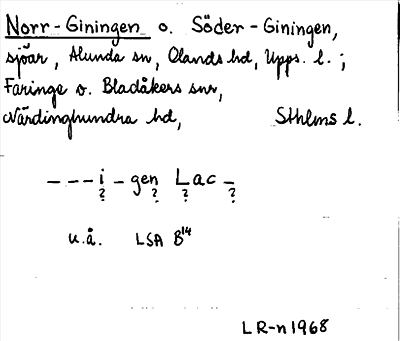 Norr-Giningen o. Söder-Giningen,
sjöar, Alunda sn, Olands hd, Upps. l. ;
Faringe o. Bladåkers snr,
Närdinghundra hd, Sthlms l.
---i-gen Lac-
? ? ? ?
u.å. LSA B14
LR-n 1968